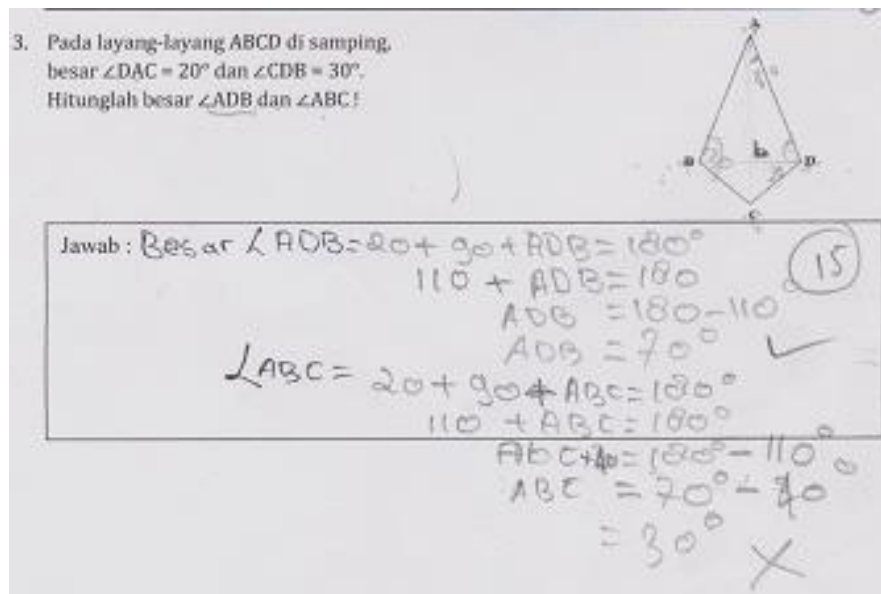 3. Pada layang-layang ABCD di samping,
besar ∠DAC = 20° dan ∠CDB = 30°.
Hitunglah besar ∠ADB dan ∠ABC!
A
B
D
C
Jawab : Besar ∠ADB = 20 + 90 + ADB = 180°
15
110 + ADB = 180
ADB = 180 - 110°
ADB = 70°
∠ABC = 20 + 90 + ABC = 180°
110 + ABC = 180°
AbC = 180° - 110°
ABC = 70° - 40°
= 30°